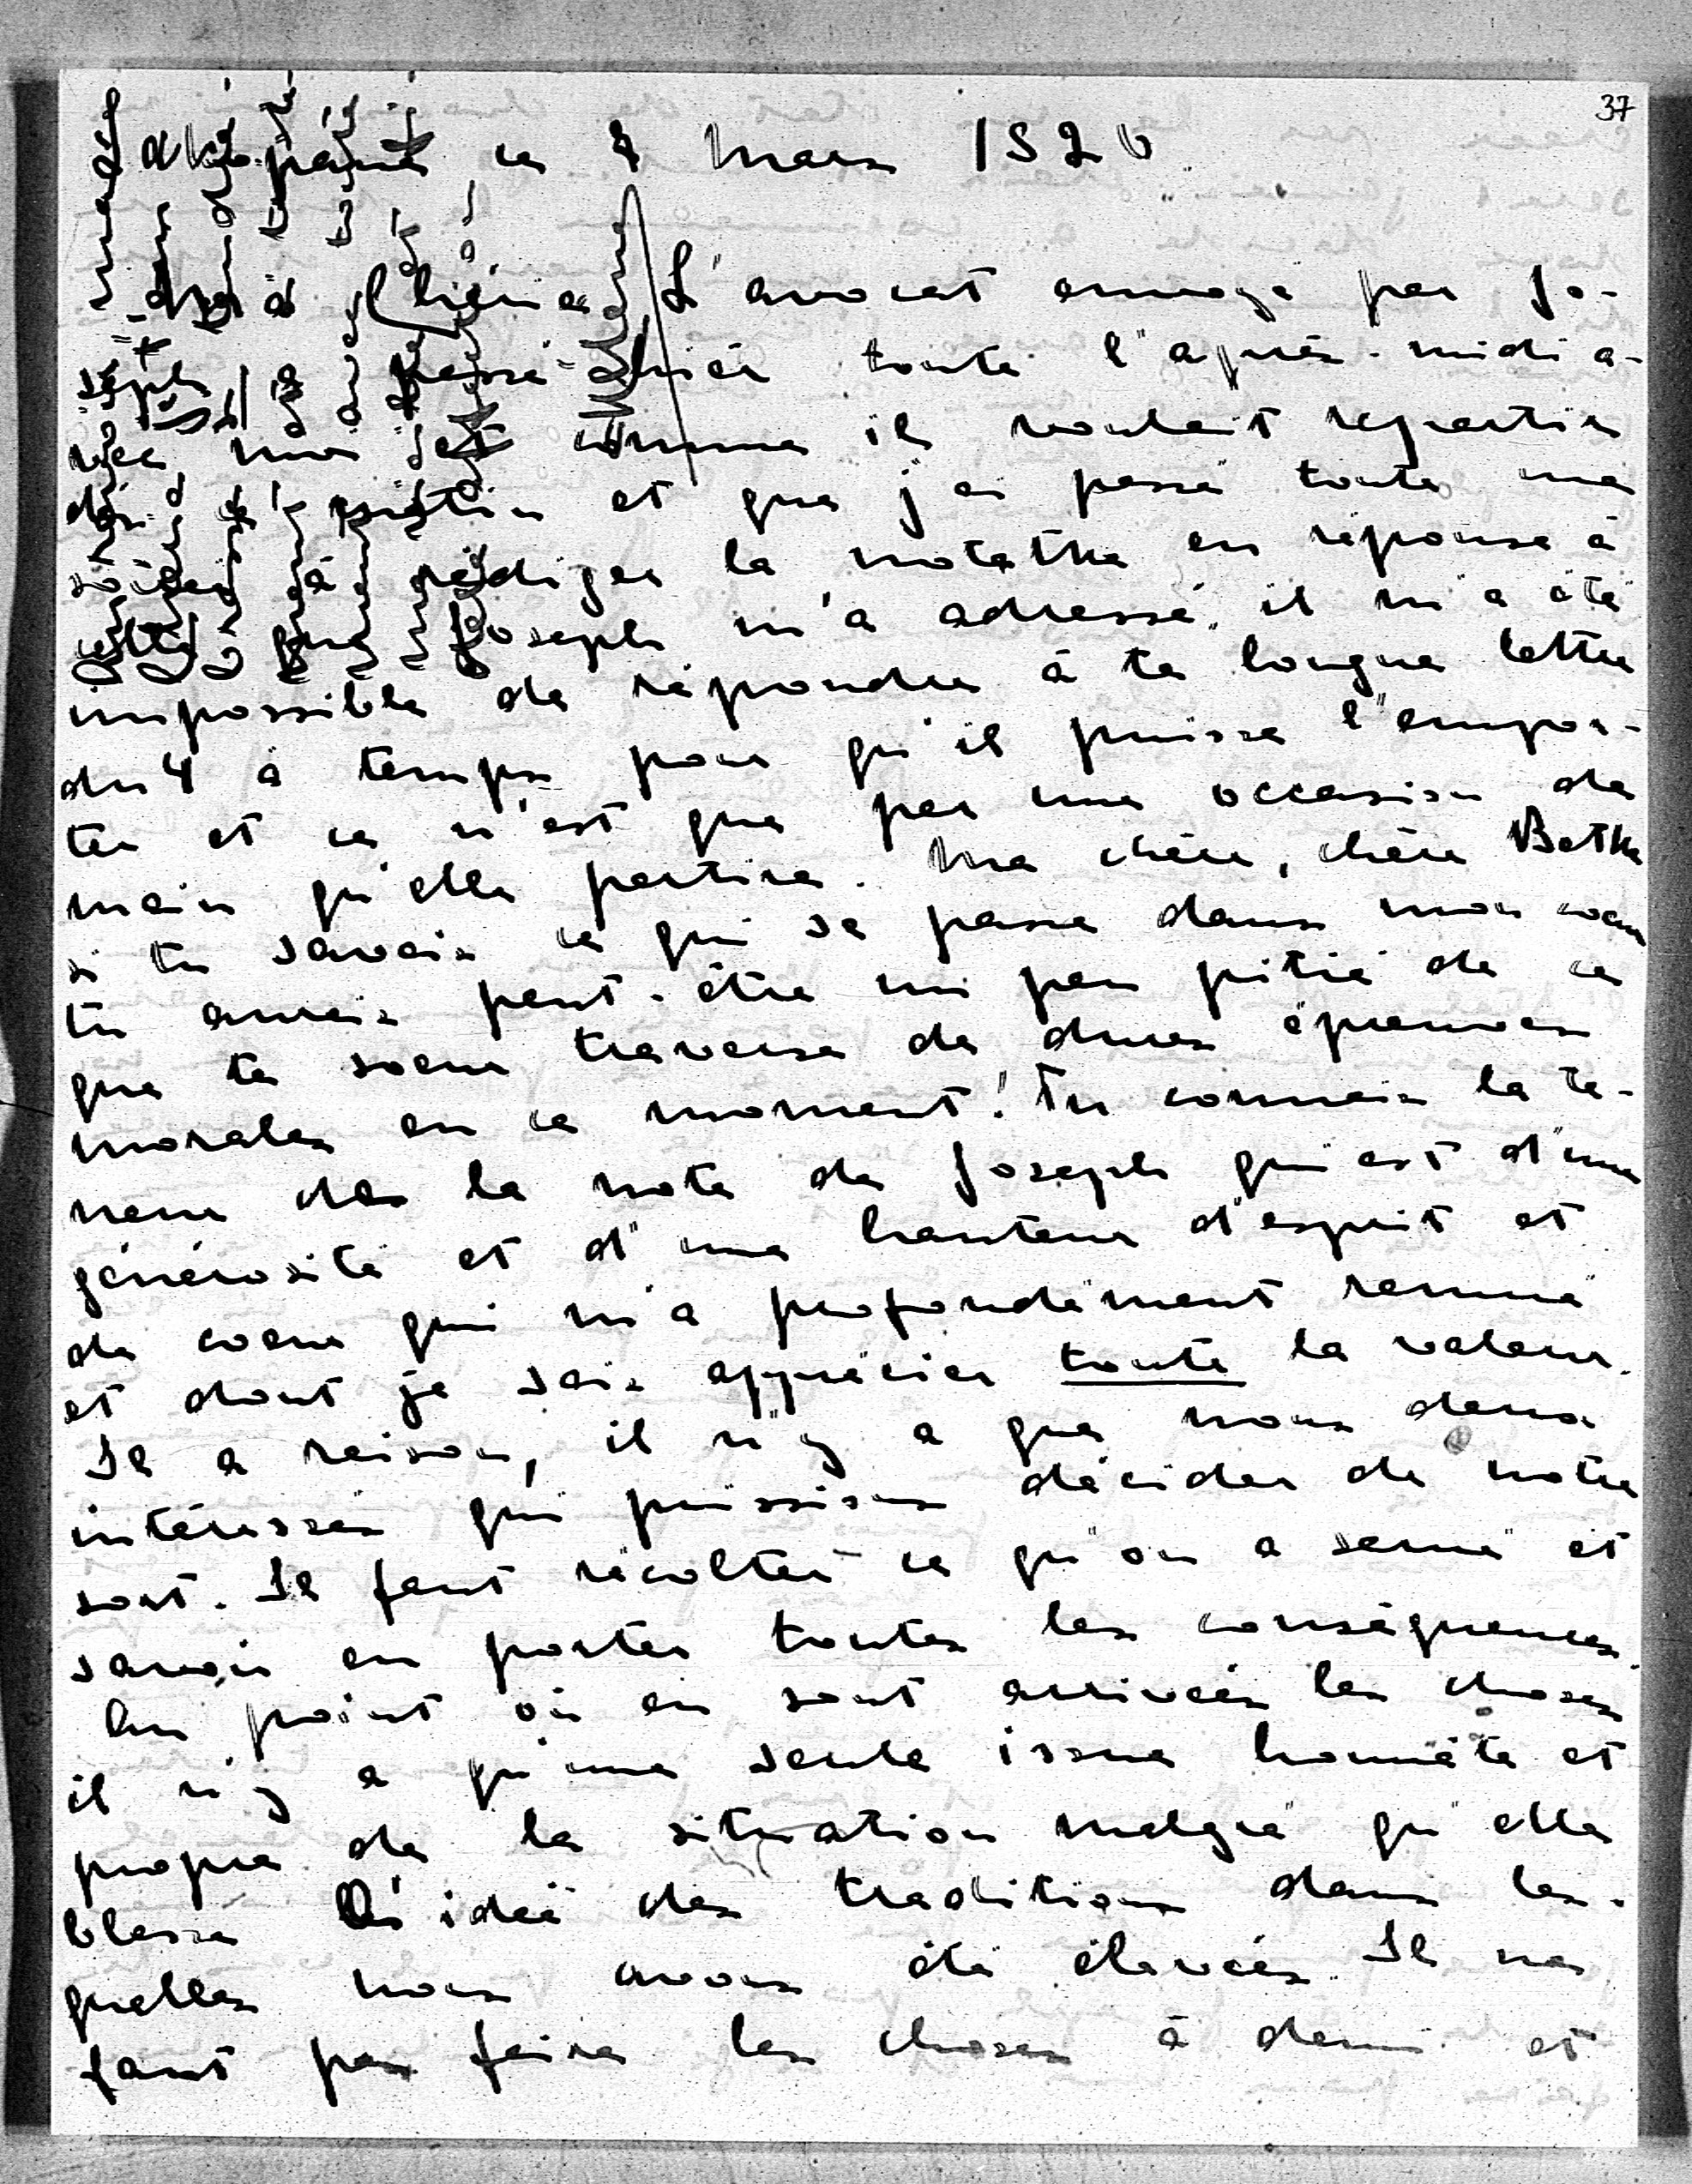 37
Zakopane ce 7 mars 1920
Ma Chérie L'avocat envoyé par Jo-
seph a passé hier toute l'après-midi a-
vec moi et comme il voulait repartir
dès le matin et que j'ai passé toute ma
soirée à rédiger la notatka en réponse à
celle que Joseph m'a adressé, il m'a été
impossible de répondre à ta longue lettre
du 4 à temps pour qu'il puisse l'empor-
ter et ce n'est que par une occasion de
main qu'elle partira. Ma chère, chère Betka
si tu savais ce qui se passe dans mon coeur
tu aurais peut-être un peu pitié de ce
que ta soeur traverse de dures épreuves
morales en ce moment! Tu connais la te-
neur de la note de Joseph qui est d'une
générosité et d'une hauteur d'esprit et
de coeur qui m'a profondément remué
et dont je sais apprécier toute la valeur.
Il a raison, il n'y a que nous deux
intéressés qui puissions décider de notre
sort. Il faut récolter ce qu'on a semé et
savoir en porter toutes les conséquences.
Au point où en sont arrivées les choses
il n'y a qu'une seule issue honnête et
propre de la situation malgré qu'elle
blesse l'idée des traditions dans les-
quelles nous avons été élevées. Il ne
faut pas faire les choses à demi et